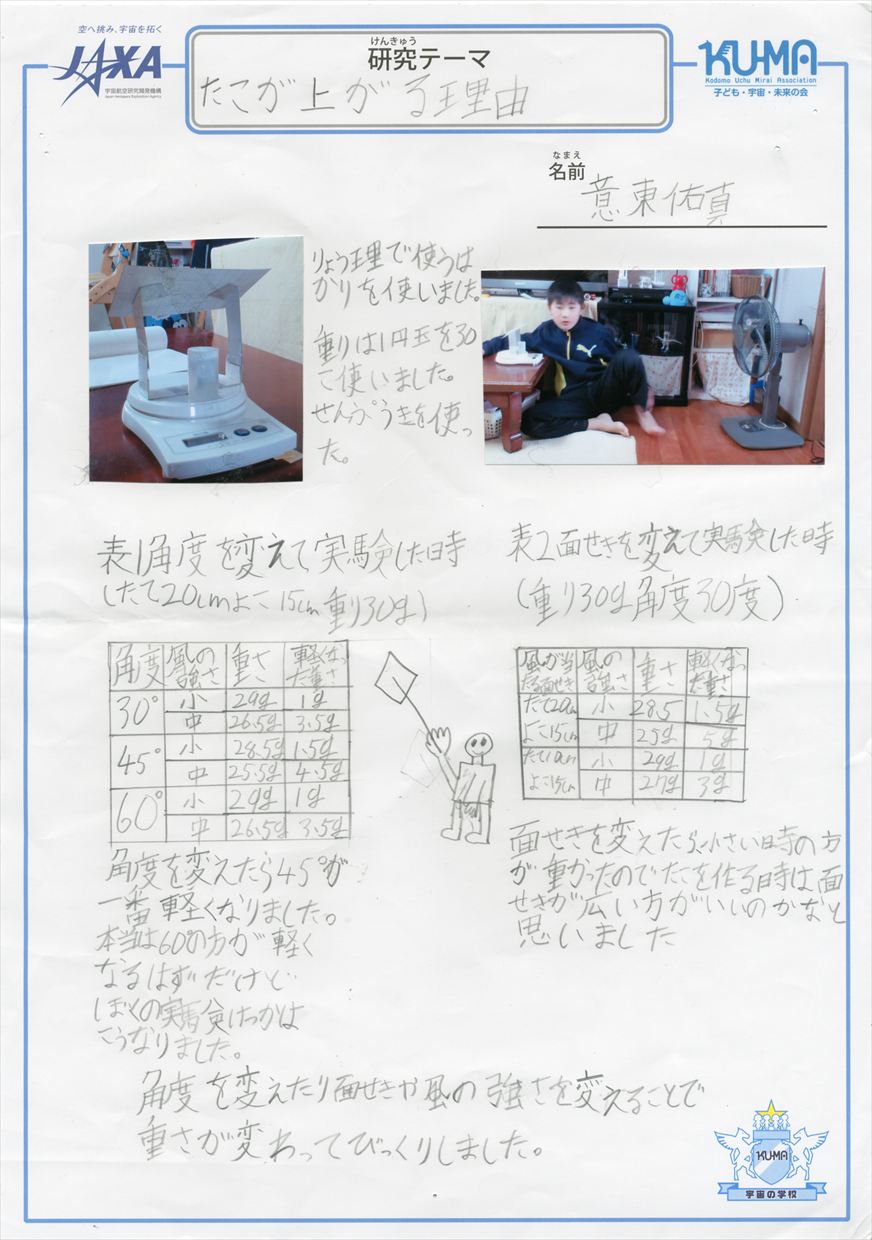 空へ挑み、宇宙を拓く
JAXA
宇宙航空研究開発機構
Japan Aerospace Exploration Agency
けんきゅう
研究テーマ
たこが上がる理由
KU-MA
Kodomo Uchu Mirai Association
子ども・宇宙・未来の会
なまえ
名前
意東佑真
りょう理で使うは
かりを使いました。
重りは1円玉を30
こ使いました。
せんぷうきを使っ
た。
表1角度を変えて実験した時
(たて20cmよこ15cm重り30g)
角度 風の強さ 重さ 軽くなった重さ
30° 小 29g 1g
中 26.5g 3.5g
45° 小 28.5g 1.5g
中 25.5g 4.5g
60° 小 29g 1g
中 26.5g 3.5g
角度を変えたら45°が
一番軽くなりました。
本当は60°の方が軽く
なるはずだけど
ぼくの実験けっかは
こうなりました。
表2面せきを変えて実験した時
(重り30g角度30度)
風が当たる面せき 風の強さ 重さ 軽くなった重さ
たて20cm 小 28.5 1.5g
よこ15cm 中 25g 5g
たて10cm 小 29g 1g
よこ15cm 中 27g 3g
面せきを変えたら小さい時の方
が重かったのでたこを作る時は面
せきが広い方がいいのかなと
思いました
角度を変えたり面せきや風の強さを変えることで
重さが変わってびっくりしました。
KU-MA
宇宙の学校